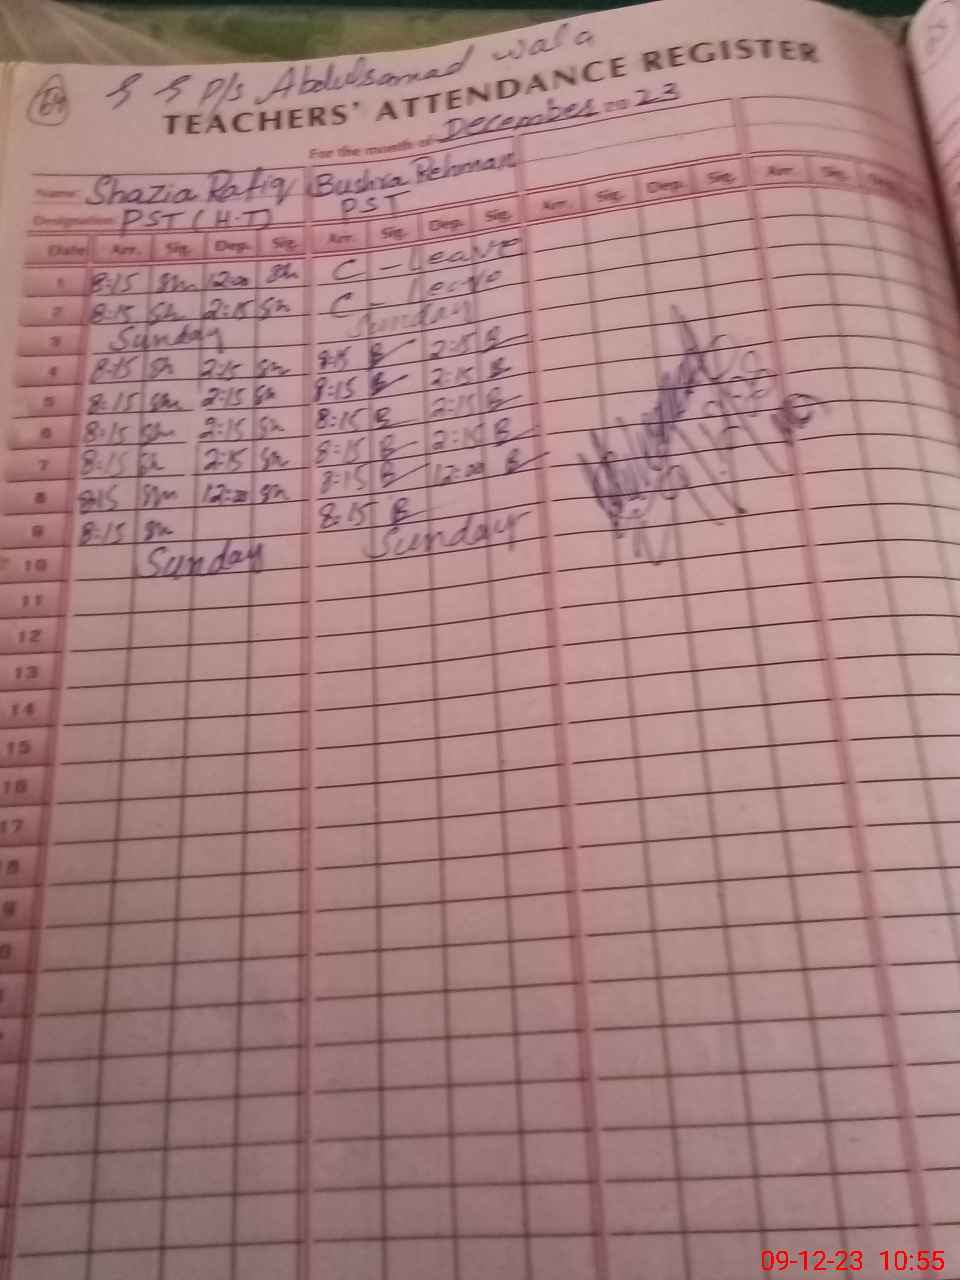 G G P/s Abdulsamad wala
TEACHERS' ATTENDANCE REGISTER
For the month of December 20 23
Name Shazia Rafiq Bushra Rehman
Designation PST (H.T) PST
Date Arr. Sig. Dep. Sig. Arr. Sig. Dep. Sig. Arr. Sig. Dep. Sig. Arr. Sig.
1 8:15 Sh 12:00 Sh C - Leave
2 8:15 Sh 2:15 Sh C -
3 Sunday Sunday
4 8:15 Sh 2:15 Sh 8:15 B 2:15 B
5 8:15 Sh 2:15 Sh 8:15 B 2:15 B
6 8:15 Sh 2:15 Sh 8:15 B 2:15 B
7 8:15 Sh 2:15 Sh 8:15 B 2:15 B
8 8:15 Sh 12:00 Sh 8:15 B 12:00 B
9 8:15 Sh 8:15 B
10 Sunday Sunday
11
12
13
14
15
16
17
09-12-23 10:55